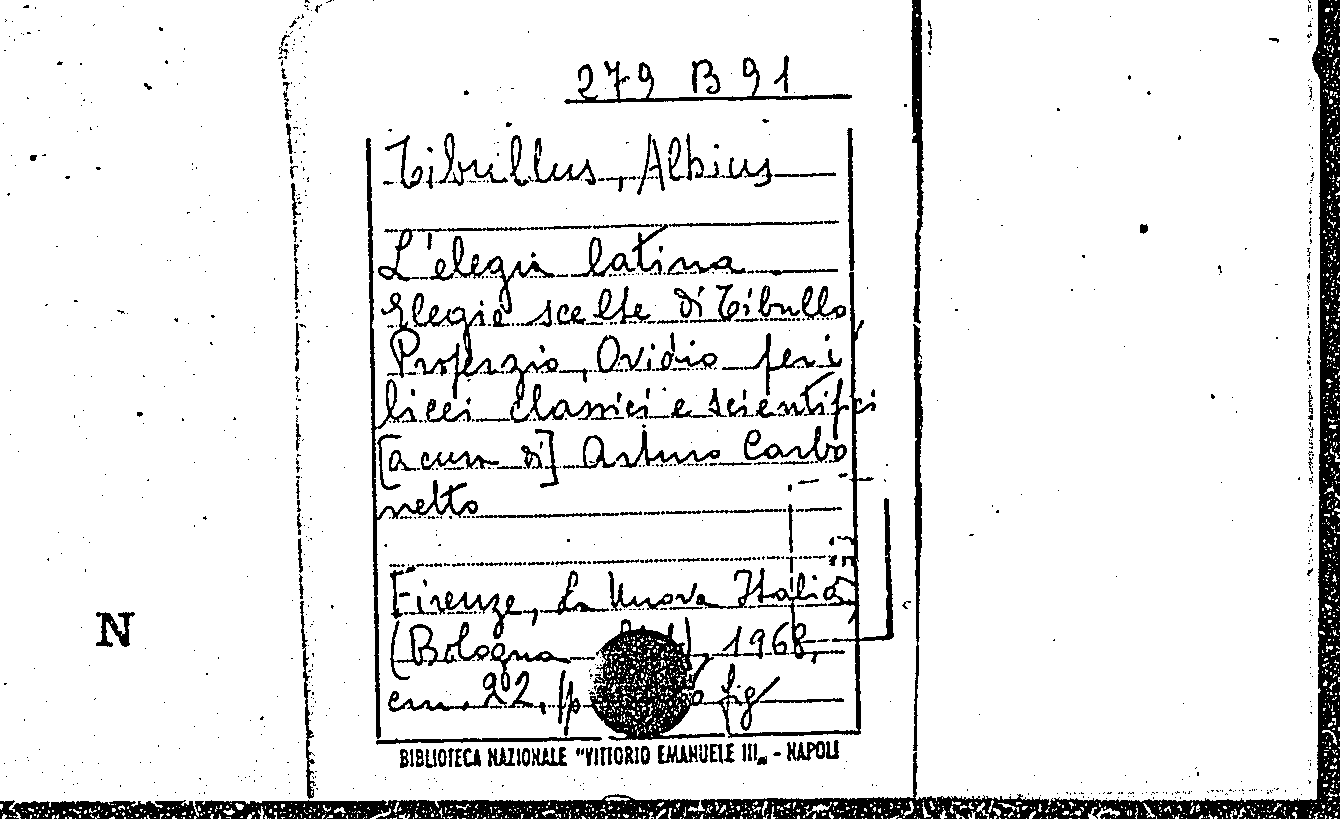 279 B 91
Tibullus, Albius
L'elegia latina
Elegie scelte di Tibullo,
Properzio, Ovidio per i
licei classici e scientifici
[a cura di] Arturo Carbo
netto
Firenze, La Nuova Italia,
(Bologna 1968,
N
cm. 22, p fig
BIBLIOTECA NAZIONALE "VITTORIO EMANUELE III„ - NAPOLI